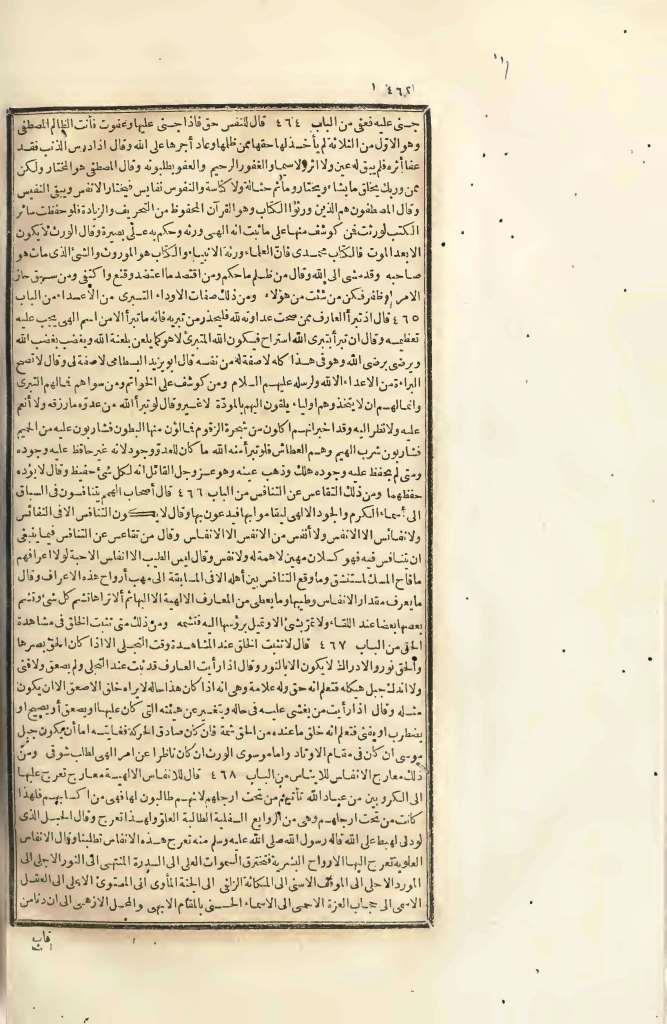 ٤٦٢
جنى عليه فعفى من الباب ٤٦٤ قال للنفس حق فاذا جنى عليها وعفوت فأنت الظالم المصطفى
وهو الاوّل من الثلاثة لم يأخذ لها حقها ممن ظلمها وعاد أجرها على الله وقال اذا درس الذنب فقد
عفا أثره فلم يبق له عين ولا اثر ولاسما والغفور الرحيم والعفو يطلبونه وقال المصطفى هو المختار ولكن
ممن وربك يخلق ما يشاء ويختار وما ثم حثالة ولا كناسة والنفوس نفايس فيختار الانفس ويبقى النفيس
وقال المصطفون هم الذين ورثوا الكتاب وهو القرآن المحفوظ من التحريف والزيادة فلو حفظت سائر
الكتب لورثت فمن كوشف منها على ما ثبت انه الهى ورثه وحكم به على بصيرة وقال الورث لا يكون
الا بعد الموت فالكتاب محمدى فانّ العلماء ورثة الانبياء والكتاب هو الموروث والنبى الذى مات هو
صاحبه وقد مشى الى الله وقال من ظلم ما حكم ومن اقتصد ما اعتضد وقنع واكتفى ومن سبق حاز
الامر وظافر فكن من شئت من هؤلاء ومن ذلك صفات الاوداء التبرى من الأعداء من الباب
٤٦٥ قال اذ تبرأ العارف ممن صحت عداوته لله فليحذر من تبريه فانه ما تبرأ الا من اسم الهى يجب عليه
تعظيمه وقال ان تبرأ بتبرى الله استراح فيكون الله المتبرئ لا هو كما يلعن بلعنة الله ويغضب بغضب الله
ويرضى برضى الله وهو فى هذا كله لا صفة له من نفسه قال ابو يزيد البسطامى لا صفة لى وقال لا تصح
البراءة من الاعداء الا لله ولرسله عليهم السلام ومن كوشف على الخواتم ومن سواهم فما لهم التبرى
وانما لهم ان لا يتخذوهم اولياء يلقون اليهم بالمودّة لا غير وقال لو تبرأ الله من عدوّه ما رزقه ولا أنعم
عليه ولا نظر اليه وقد اخبر انهم آكلون من شجرة الزقوم فمالؤن منها البطون فشاربون عليه من الحميم
فشاربون شرب الهيم وهم العطاش فلو تبرأ منه الله ما كان للعدوّ وجود لانه غير حافظ عليه وجوده
ومتى لم يحفظ عليه وجوده هلك وذهب عينه وهو عز وجل القائل انه لكل شئ حفيظ وقال لا يؤده
حفظهما ومن ذلك التقاعس عن التنافس من الباب ٤٦٦ قال أصحاب الهمم يتنافسون فى السباق
الى أسماء الكرم والجود الالهى ليقاموا بها فيدعون بها وقال لا يكون التنافس الا فى النفائس
ولا نفائس الا الانفس ولا أنفس من الانفس الا الانفاس وقال من تقاعس عن التنافس فيما ينبغى
ان يتنافس فيه فهو كسلان مهين لا همة له ولا نفس وقال ليس الطيب الا انفاس الاحبة لولا اعرافهم
ما فاح المسك لمستنشق وما وقع التنافس بين أهله الا فى المسابقة الى مهب أرواح هذه الاعراف وقال
ما يعرف مقدار الانفاس وطيبها وما يعطى من المعارف الالهية الا البهائم ألا تراها تشم كل شئ وتشم
بعضها بعضا عند اللقاء ولا تمرّ بشئ الا وتميل برؤسها اليه فتشمه ومن ذلك متى تثبت الخلق فى مشاهدة
الحق من الباب ٤٦٧ قال لا تثبت الخلق عند المشاهدة وقت التجلى الا اذا كان الحق بصرها
والحق نور والادراك لا يكون الا بالنور وقال اذا رأيت العارف قد ثبت عند التجلى ولم يصعق ولا فنى
ولا اندك جبل هيكله فتعلم انه حق وله علامة وهى انه اذا كان هذا حاله لا يراه خلق الا صعق الا ان يكون
مثله وقال اذا رأيت من يغشى عليه فى حاله ويتغير عن هيئته التى كان عليها او يصعق أو يصيح او
يضطرب او يفنى فتعلم انه خلق ما عنده من الحق شمة فان كان صادق الحركة فغايته اما أن يكون جبل
موسى ان كان فى مقام الاوتاد واما موسوى الورث ان كان ناظرا عن امر الهى لطالب شوقى ومن
ذلك معارج الانفاس للايناس من الباب ٤٦٨ قال للانفاس الالهية معارج تعرج عليها
الى الكروبين من عباد الله تأتيهم من تحت ارجلهم لانهم طالبون لها فهى من اكسابهم فلهذا
كانت من تحت ارجلهم وهى من الروايع السفلية الطالبة العلو ولهذا تعرج وقال الحبل الذى
لو دلى لهبط على الله قاله رسول الله صلى الله عليه وسلم منه تعرج هذه الانفاس تطلبنا وقال الانفاس
العلوية تعرج اليها الارواح البشرية فتخترق السموات العلى الى السدرة المنتهى الى النور الاجلى الى
المورد الاحلى الى الموقف الاسنى الى المكانة الزلفى الى الجنة المأوى الى المستوى الاعلى الى العقل
الاسمى الى حجاب العزة الاحمى الى الاسماء الحسنى بالمقام الابهى والمحل الازهى الى ان دنا من
قاب